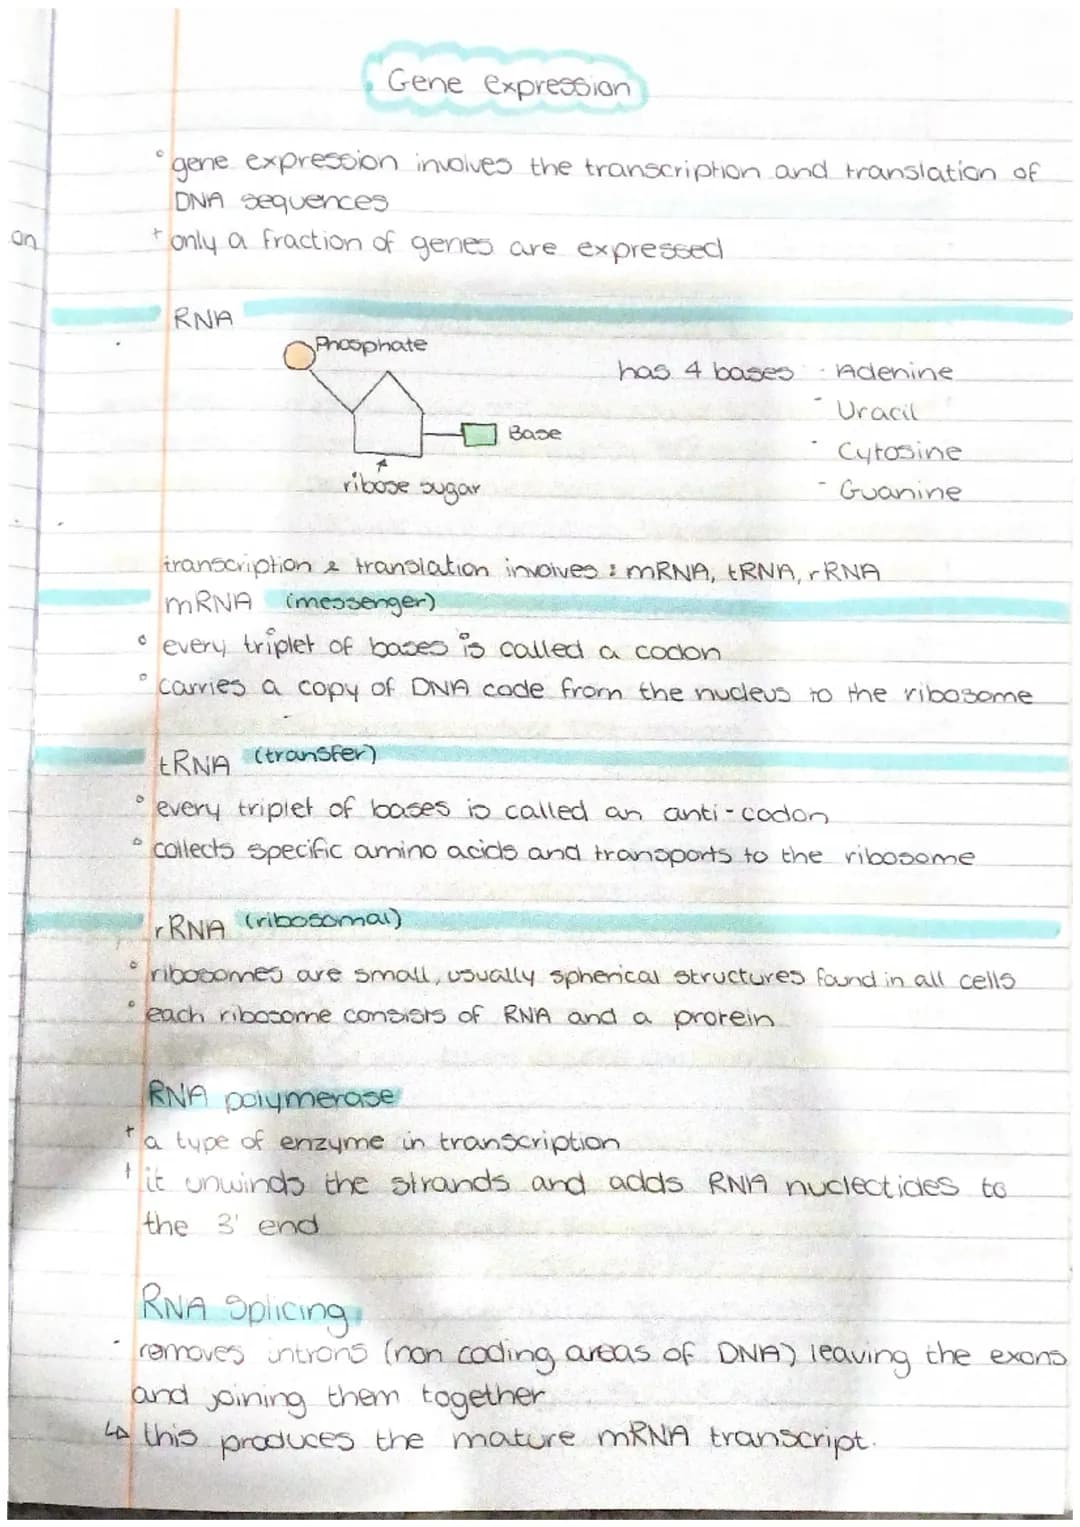 Gene expression
gene expression involves the transcription and translation of
DNA sequences
on
+ only a fraction of genes are expressed
RNA
Phosphate
has 4 bases · Adenine
- Uracil
· Cytosine
- Guanine
Base
ribose sugar
transcription & translation involves : mRNA, tRNA, rRNA
mRNA (messenger)
° every triplet of bases is called a codon
° carries a copy of DNA code from the nucleus to the ribosome
tRNA (transfer)
° every triplet of bases is called an anti-codon
° collects specific amino acids and transports to the ribosome
rRNA (ribosomal)
° ribosomes are small, usually spherical structures found in all cells
° each ribosome consists of RNA and a protein
RNA polymerase
+ a type of enzyme in transcription
+ it unwinds the strands and adds RNA nuclectides to
the 3' end
RNA Splicing
- removes introns (non coding areas of DNA) leaving the exons
and joining them together
↳ this produces the mature mRNA transcript.